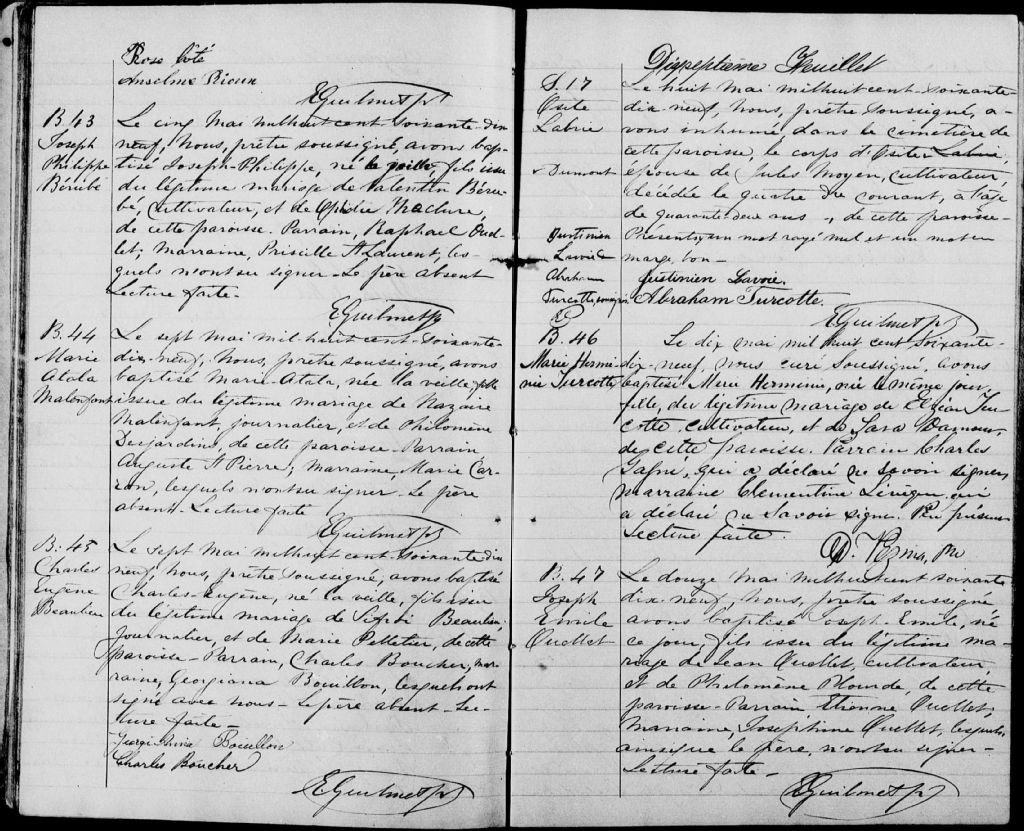 Rose Côté
Anselme Rioux
E Guilmet ptr
B. 43
Joseph
Philippe
Bérubé
Le cinq Mai mil huit cent soixante-dix
neuf, Nous, prêtre soussigné, avons bap-
tisé Joseph-Philippe, né la veille, fils issu
du légitime mariage de Valentin Béru-
bé, cultivateur, et de Maclure,
de cette paroisse. Parrain, Raphael Ouel-
let; Marraine, Priscille St Laurent, les-
quels n'ont su signer. Le père absent
Lecture faite-
E Guilmet ptr
B. 44
Marie
Atala
Malenfant
Le sept mai mil-huit-cent-soixante-
dix-neuf, Nous, prêtre soussigné, avons
baptisé Marie-Atala, née la veille, fille
issue du légitime mariage de Nazaire
Malenfant, journalier, et de Philomène
Desjardins, de cette paroisse. Parrain
Auguste St Pierre; marraine, Marie Car-
ron, lesquels n'ont su signer. Le père
absent. Lecture faite
E Guilmet ptr
B. 45
Charles
Eugène
Beaulieu
Le sept Mai mil huit cent soixante dix
neuf, Nous, prêtre soussigné, avons baptisé
Charles-Eugène, né la veille, fils issu
du légitime mariage de Beaulieu,
journalier, et de Marie Pelletier, de cette
paroisse- Parrain, Charles Boucher, mar-
raine, Georgiana Bouillon, lesquels ont
signé avec nous- Le père absent- Lec-
ture faite-
Bouillon
Charles Boucher
E Guilmet ptr
Dixseptième Feuillet
S. 17
Osite
Labrie
x Dumont
Le huit Mai mil huit cent-soixante
dix-neuf, Nous, prêtre soussigné, a-
vons inhumé, dans le cimetière de
cette paroisse, le corps d'Osite Labrie,
épouse de Jules Moyen, cultivateur,
décédée le quatre du courant, à l'âge
de quarante-deux ans, de cette paroisse-
Présents, un mot rayé nul et un mot en
marge, bon-
Justinien
Lavoie
Abraham
Turcotte,
Justinien Lavoie.
Abraham Turcotte.
E Guilmet ptr
B. 46
Marie Hermi-
nie Turcotte
Le dix mai mil huit cent soixante-
dix-neuf, nous curé soussigné, avons
baptisé Marie Herminie, née le même jour,
fille, du légitime mariage de Elzéar Tur-
cotte, cultivateur, et de Sara Damours,
de cette paroisse. Parrain Charles
Gagné, qui a déclaré ne savoir signer,
marraine Clementine qui
a déclaré ne savoir signer. Père présent
Lecture faite.
D. Ptr
B. 47
Joseph
Emile
Ouellet
Le douze Mai mil huit cent soixante
dix-neuf, Nous, prêtre soussigné
avons baptisé Joseph-Emile, né
ce jour, fils issu du légitime ma-
riage de Jean Ouellet, cultivateur
et de Philomène Plourde, de cette
paroisse- Parrain Etienne Ouellet;
Marraine, Joséphine Ouellet, lesquels,
ainsi que le père, n'ont su signer-
Lecture faite-
E Guilmet ptr